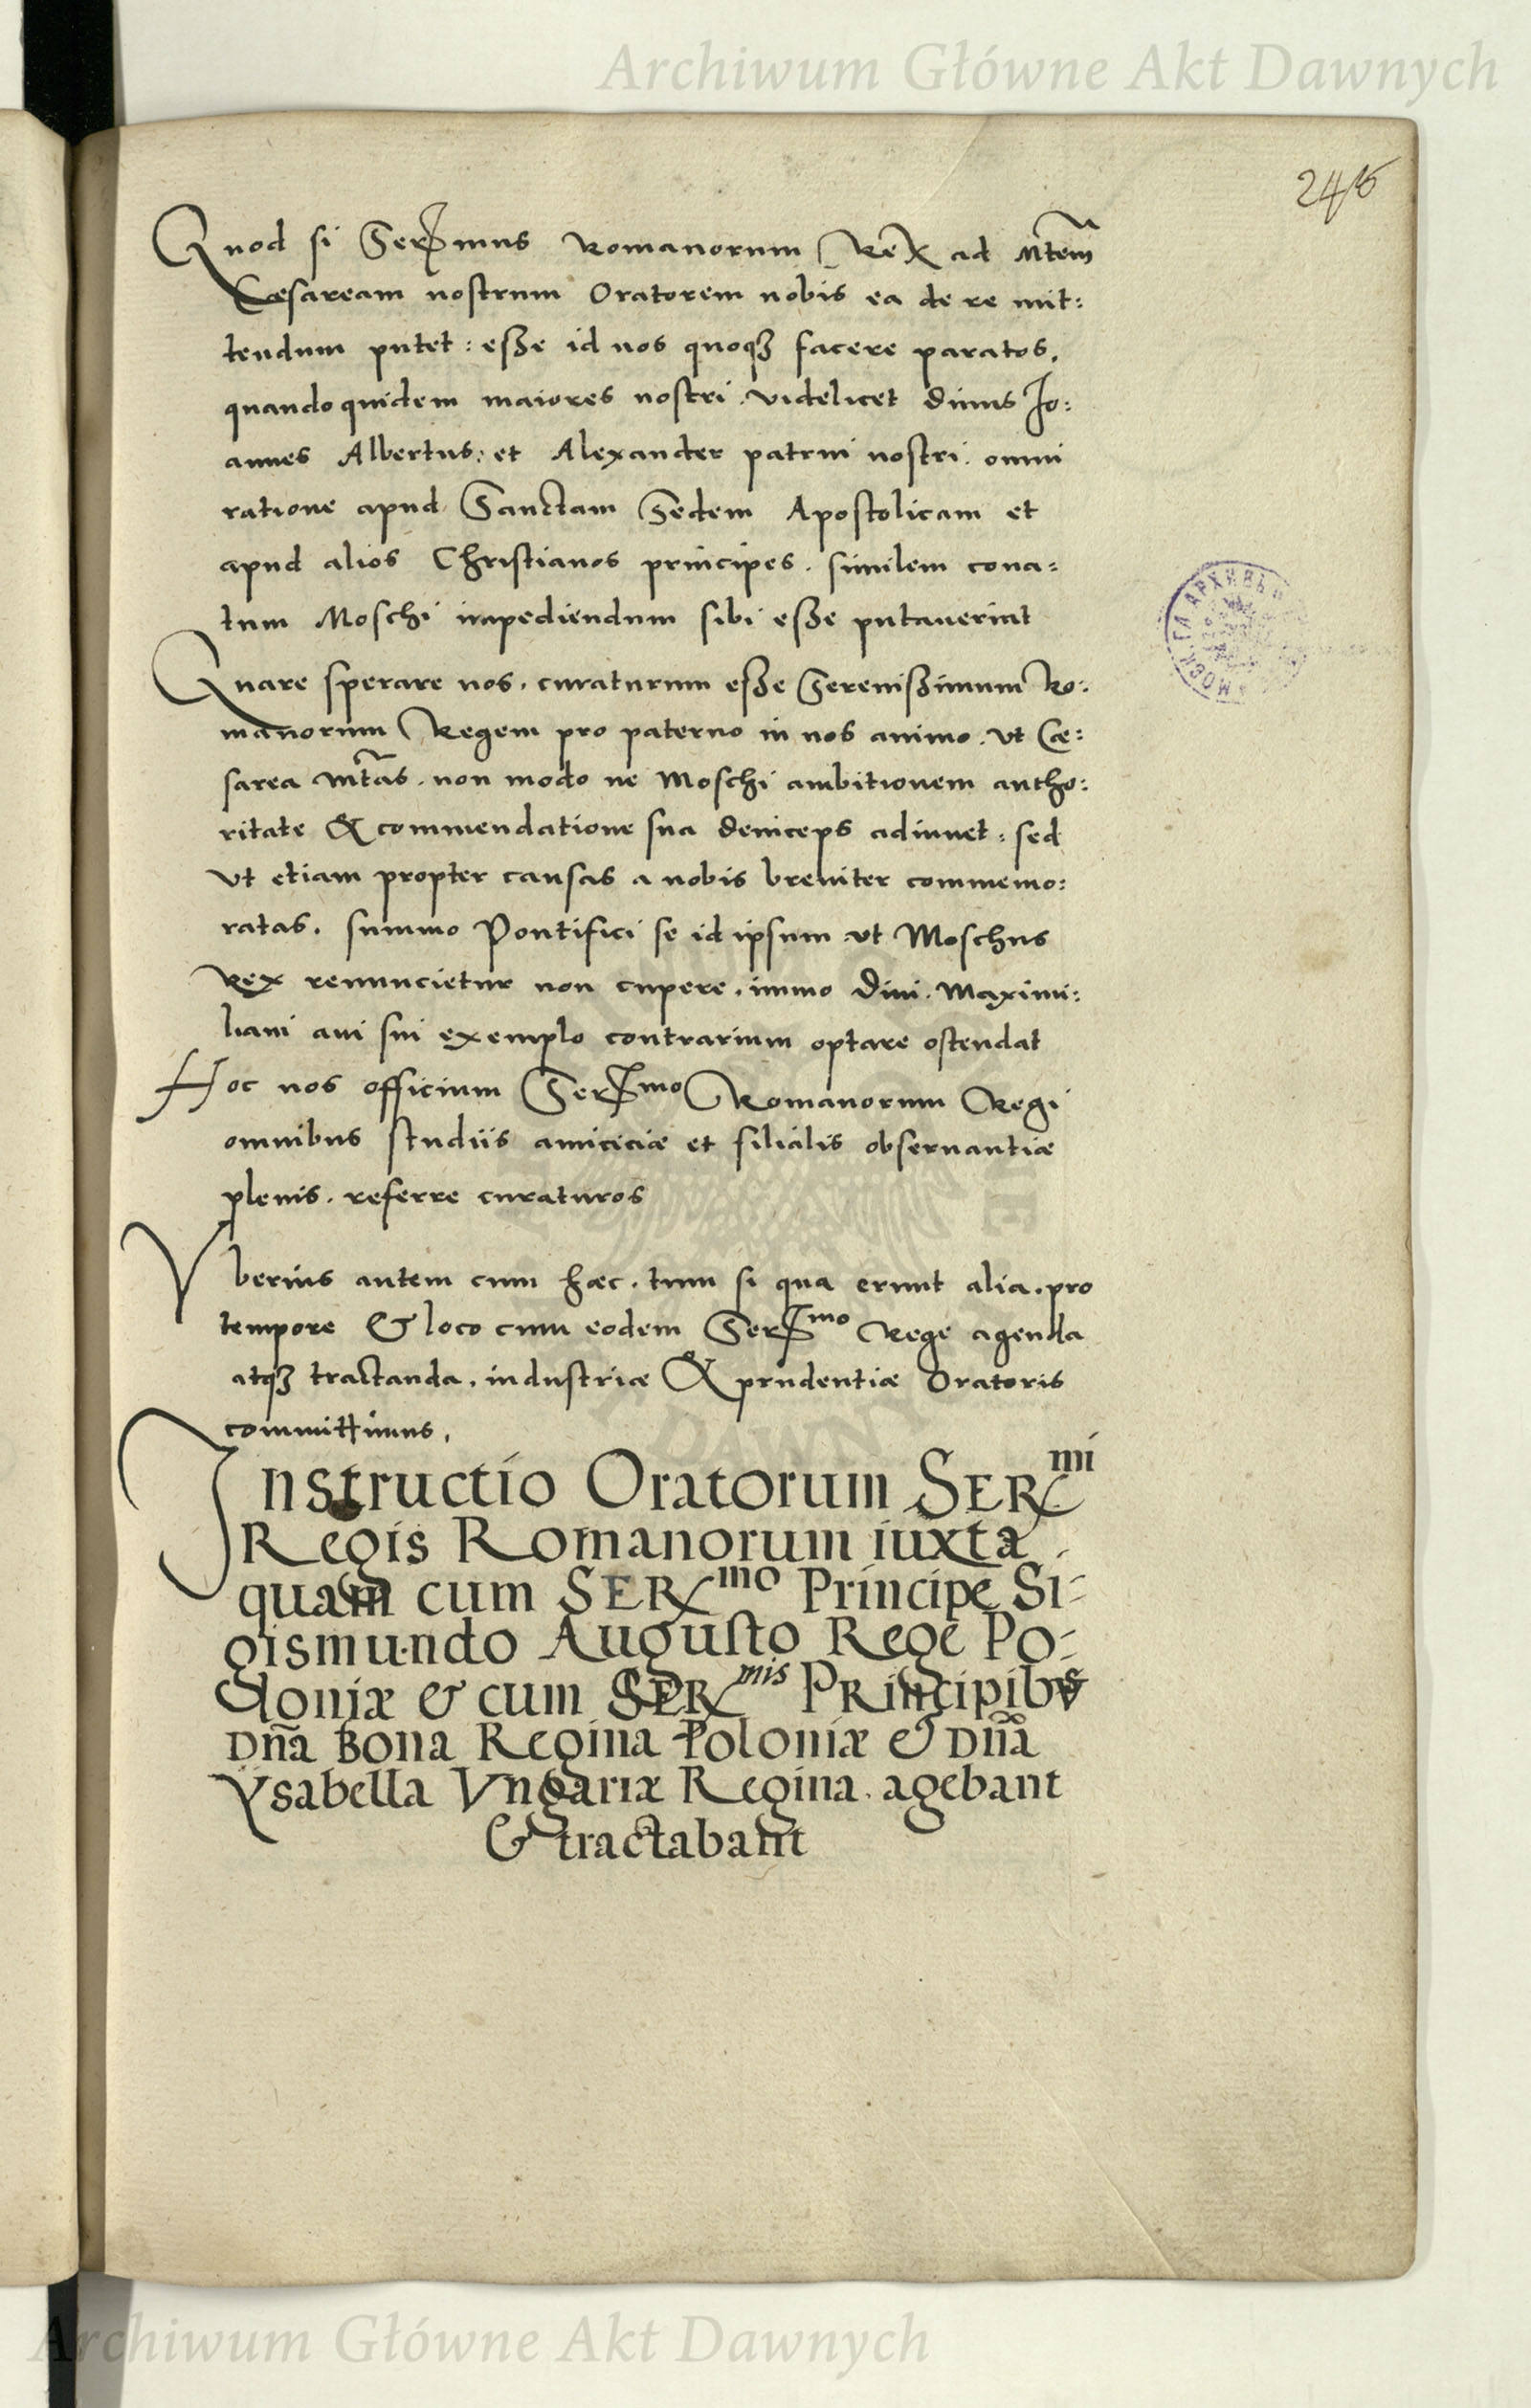 Archiwum Główne Akt Dawnych
245
Quod si Serᵐmus Romanorum Rex ad Mtem
Cæsaream nostrum Oratorem nobis ea de re mit:
tendum putet: esse id nos quoqȝ facere paratos,
quandoquidem maiores nostri. videlicet Diuus Jo:
annes Albertus: et Alexander patrui nostri. omni
ratione apud Sanctam Sedem Apostolicam et
apud alios Christianos principes. similem cona=
tum Moschi impediendum sibi esse putauerint
Quare sperare nos, curaturum esse Serenissimum Ro:
manorum Regem pro paterno in nos animo. vt Cæ:
sarea Mtas. non modo ne Moschi ambitionem autho:
ritate & commendatione sua deinceps adiuuet: sed
vt etiam propter causas a nobis breuiter commemo:
ratas, summo Pontifici se id ipsum vt Moschus
Rex renuncietur non cupere, immo Diui. Maximi:
liani aui sui exemplo contrarium optare ostendat
Hoc nos officium Serᵐᵒ Romanorum Regi
omnibus studiis amiciciæ et filialis obseruantiæ
plenis. referre curaturos
Vberius autem cum hæc. tum si qua erunt alia. pro
tempore & loco cum eodem Serᵐᵒ Rege agenda
atqȝ tractanda, industriæ & prudentiæ Oratoris
committimus,
Instructio Oratorum SERᵐⁱ
Regis Romanorum iuxta
quam cum SERᵐᵒ Principe Si=
gismundo Augusto Rege Po=
loniæ & cum SERᵐⁱˢ PRincipibus
Dña Bona Regina Poloniæ & Dña
Ysabella Vngariæ Regina. agebant
& tractabant
Archiwum Główne Akt Dawnych